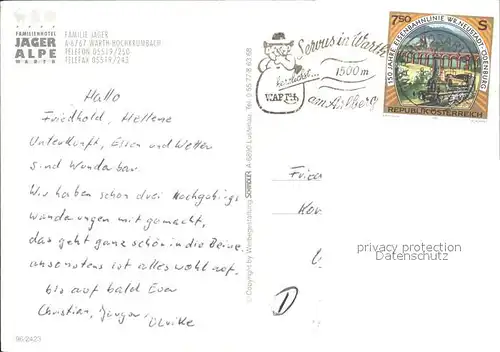 FAMILIENHOTEL
JÄGER
ALPE
WARTH
FAMILIE JÄGER
A-6767 WARTH-HOCHKRUMBACH
TELEFON 05519/250
TELEFAX 05519/243
Hallo
Friedhold, Hellene
Unterkunft, Essen und Wetter
sind Wunderbar.
Wir haben schon drei Hochgebirgs
wanderungen mit gemacht,
das geht ganz schön in die Beine.
ansonsten ist alles wohl auf.
bis auf bald Euer
Christian, Jürgen,
Ulrike
96/2423
© Copyright by Werbegestaltung SCHINDLER A-6890 Lustenau, Tel. 0 55 77/8 63 68
Servus in Warth
herzlichst...
1500 m
WARTH
am Arlberg
7.50 S
150 JAHRE EISENBAHNLINIE WR. NEUSTADT-ÖDENBURG
REPUBLIK ÖSTERREICH
D
privacy protection
Datenschutz